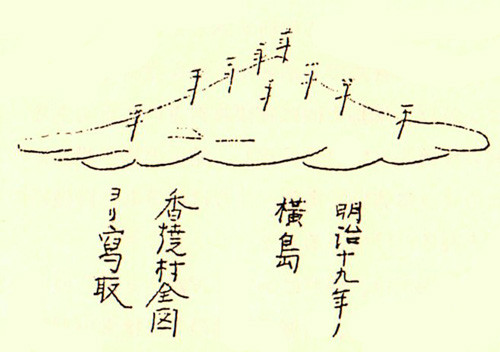 明治十九年ノ
横島
香焼村全図
ヨリ寫取